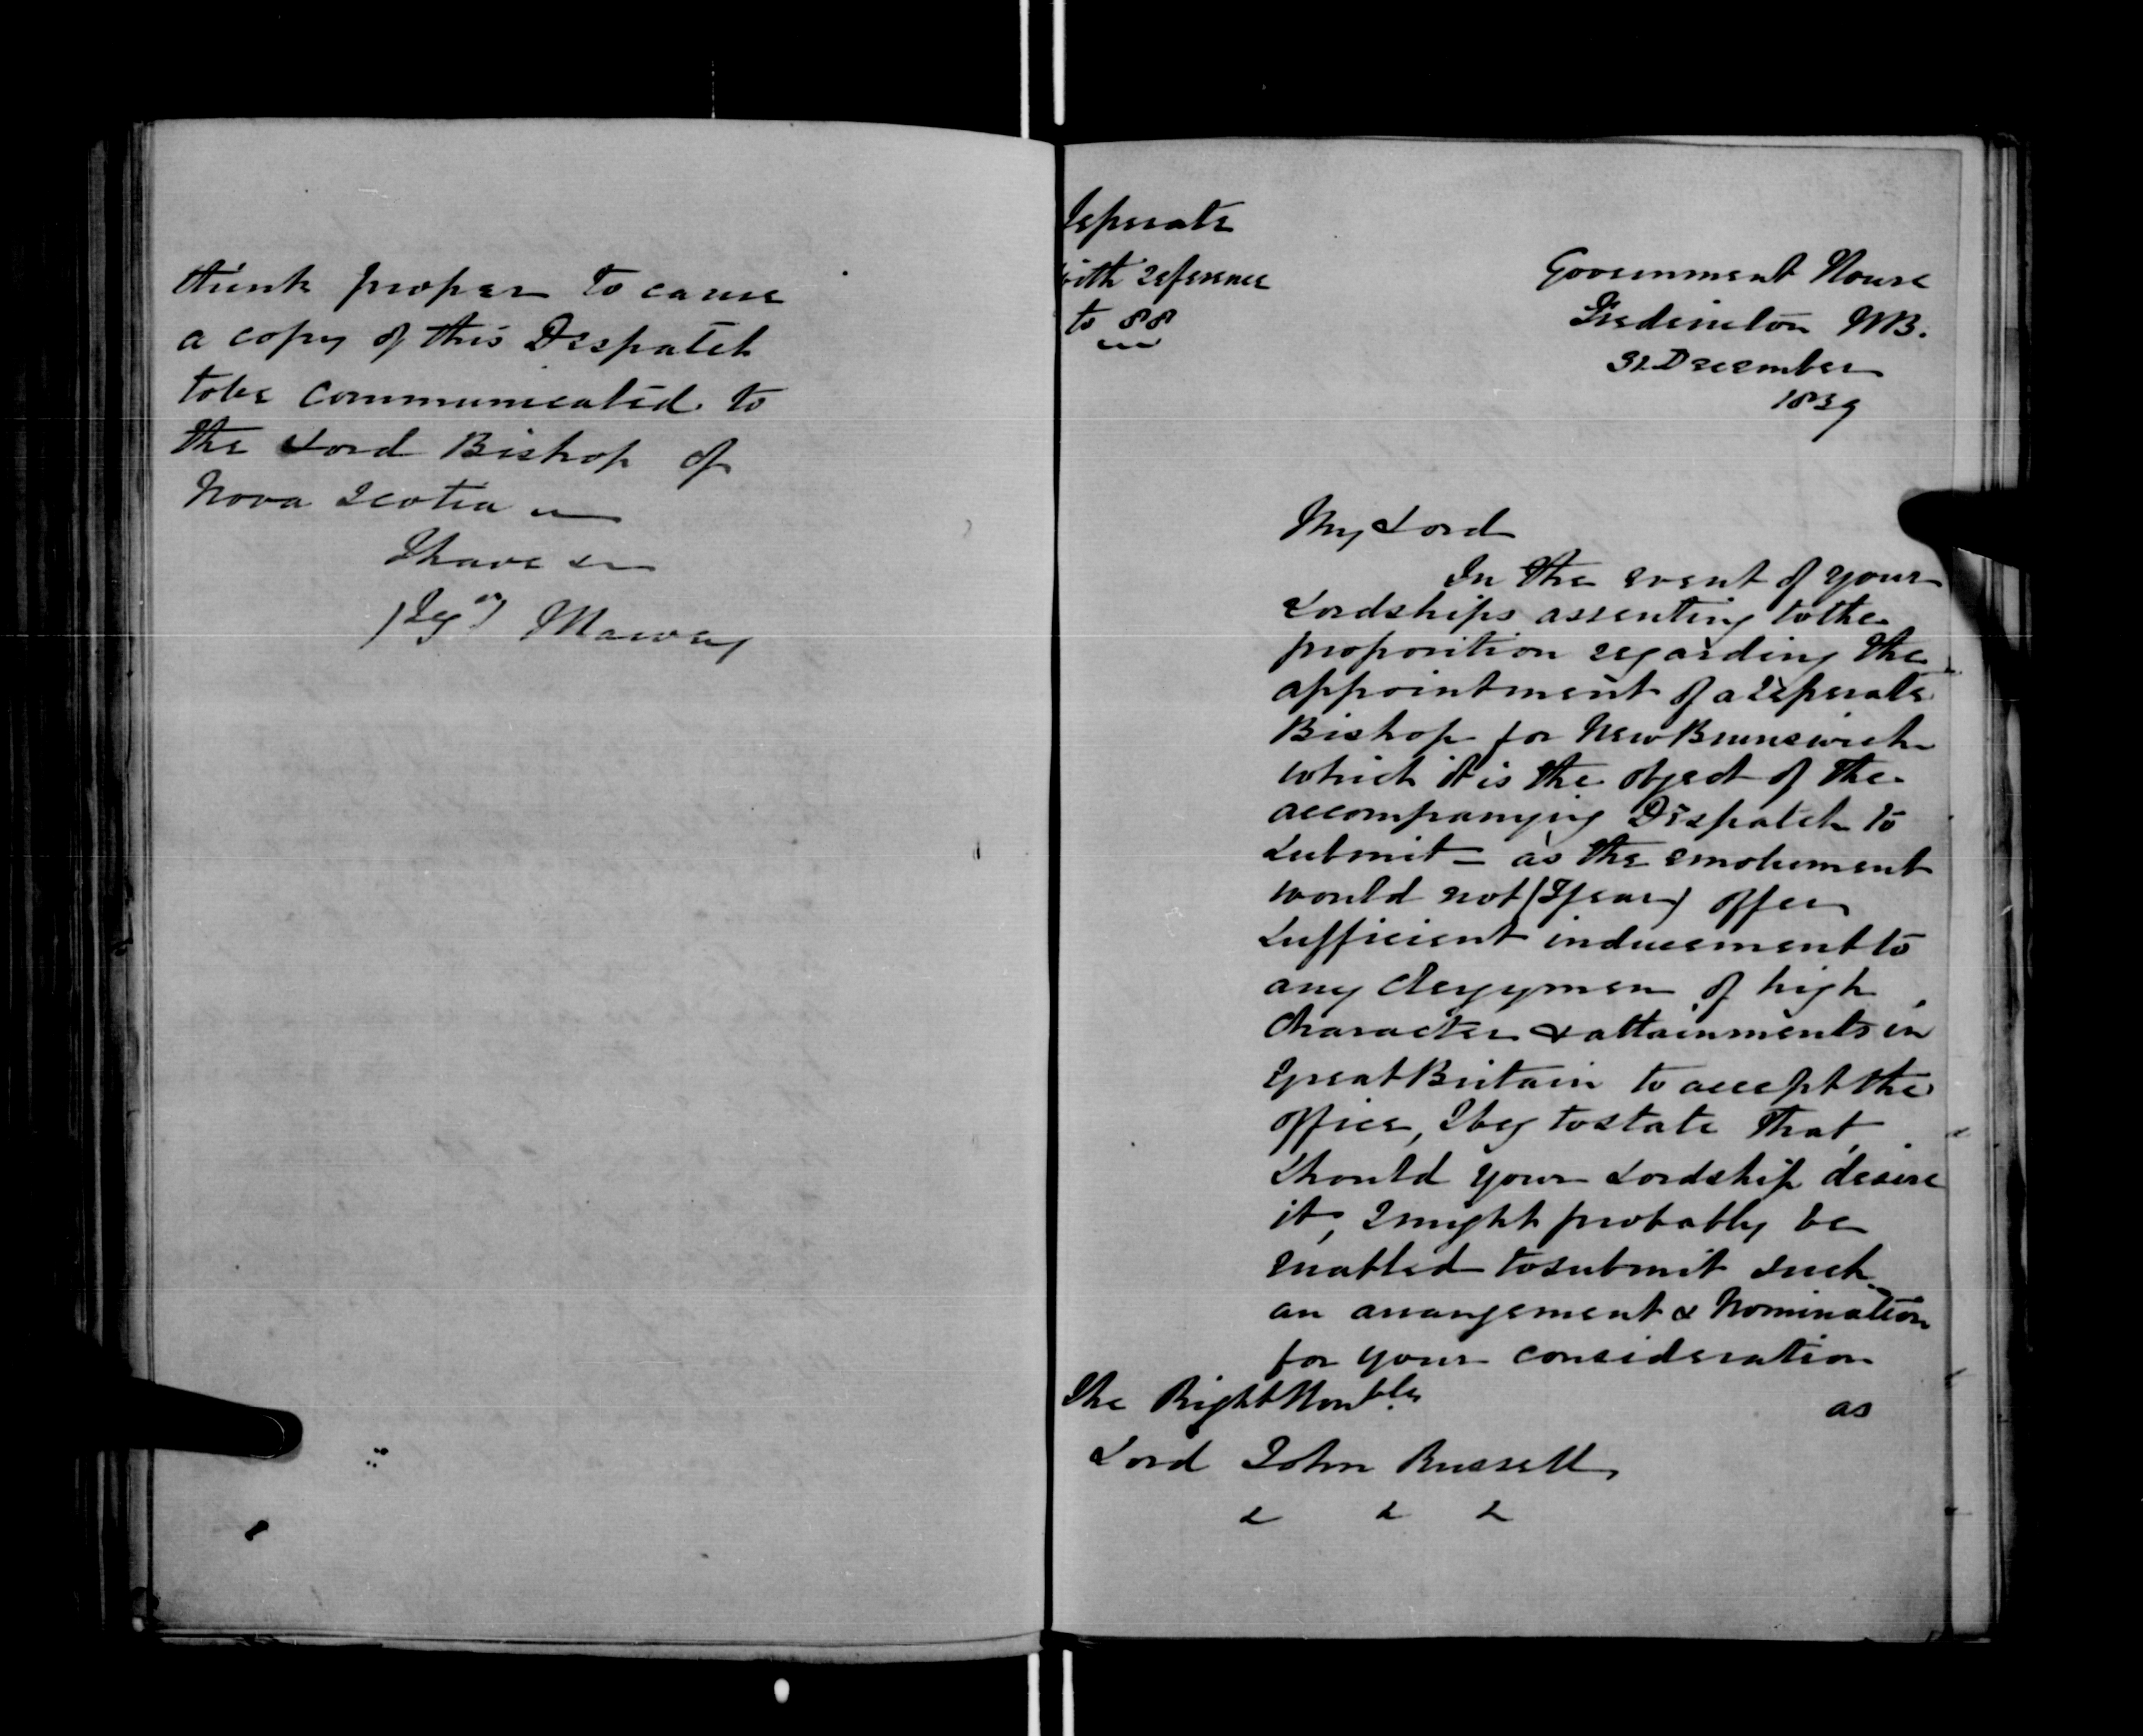 think proper to cause
a copy of this Despatch
to be communicated to
the Lord Bishop of
Nova Scotia
I have &c
(Sgd) J Harvey
Seperate
with reference
to 88
Government House
Fredericton NB.
31 December
1839
My Lord
In the event of your
Lordships assenting to the
proposition regarding the
appointment of a seperate
Bishop for New Brunswick
which it is the object of the
accompanying Despatch to
submit = as the emolument
would not (I fear) offer
sufficient inducement to
any clergyman of high
character & attainments in
Great Britain to accept the
office, I beg to state that
should your Lordship desire
it, I might probably be
enabled to submit such
an arrangement & Nomination
for your consideration
as
The Right Honble
Lord John Russell
& & &